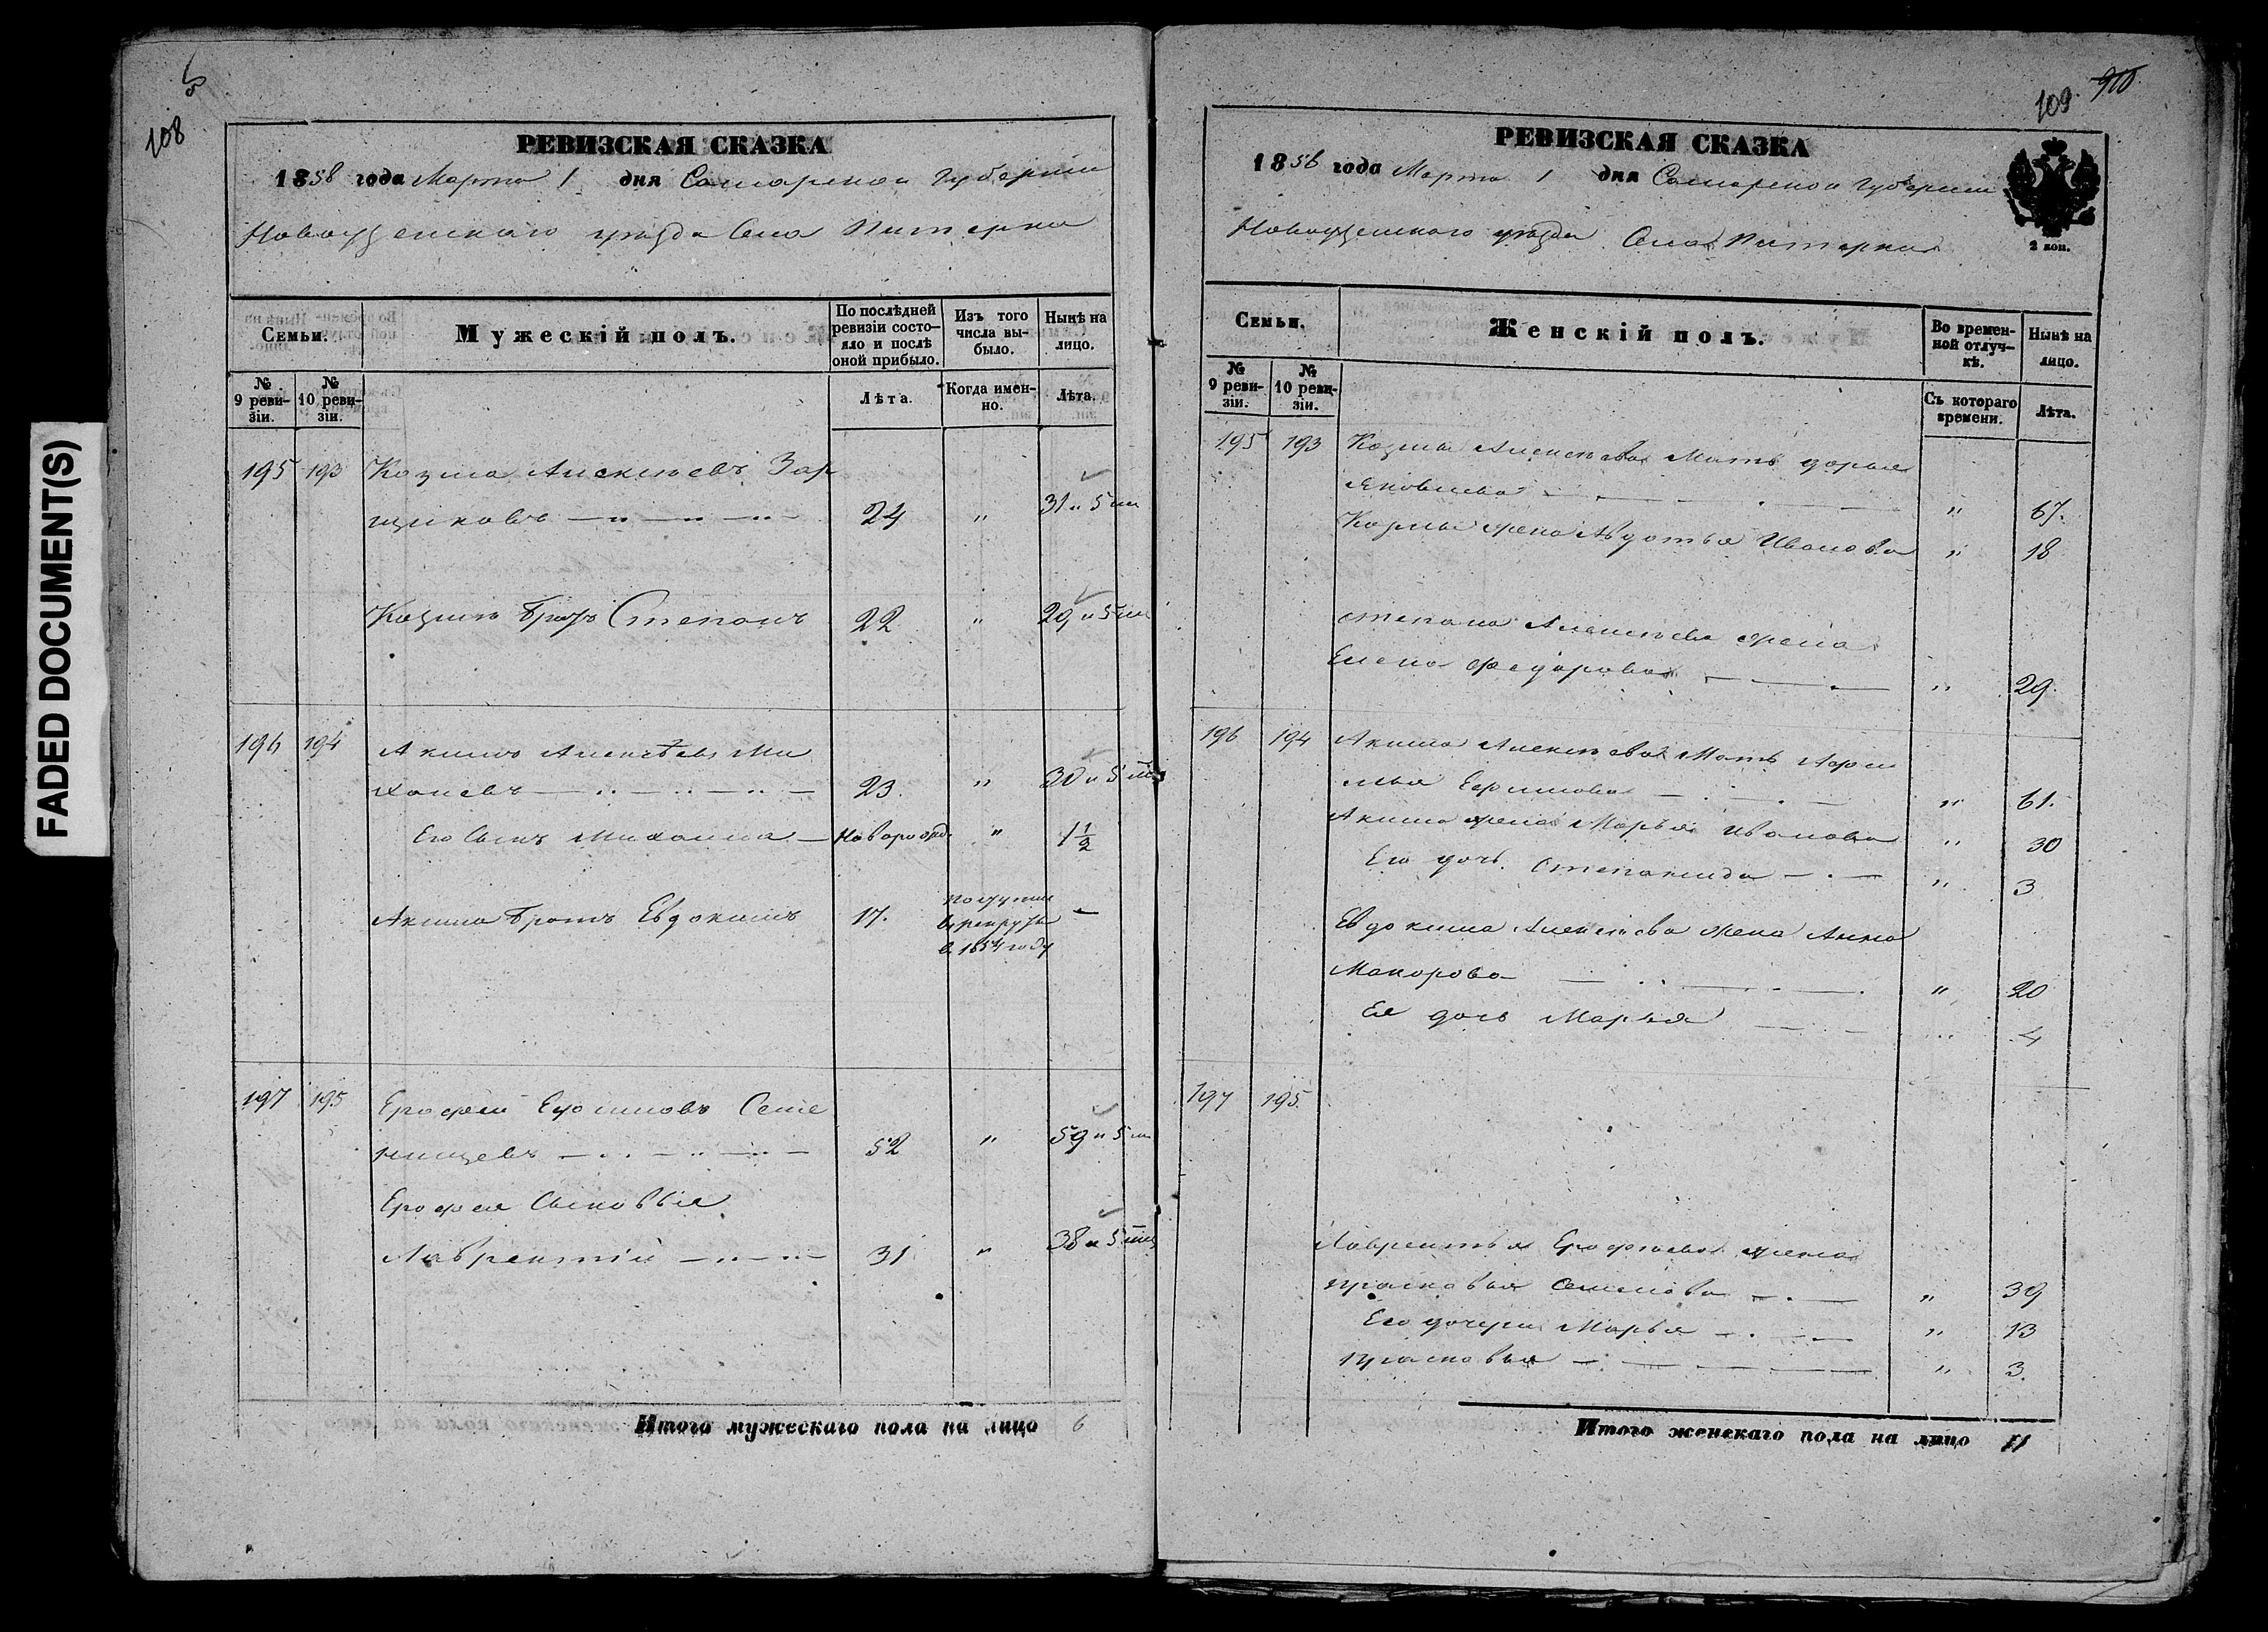 FADED DOCUMENT(S)
108
РЕВИЗСКАЯ СКАЗКА
1858 года Марта 1 дня Самарской Губернии
Новоузенскаго уезда Села Питерки
Семьи.
Мужескій полъ.
По послѣдней ревизіи состояло и послѣ оной прибыло.
Изъ того числа выбыло.
Нынѣ на лицо.
№ 9 ревизіи.
№ 10 ревизіи.
Лѣта.
Когда именно.
Лѣта.
195 193 Козма Алексѣевъ Зар
щиковъ 24 " 31 и 5 ме
Козмы братъ Степанъ 22 " 29 и 5 ме
196 194 Акимъ Алексѣевъ Ми
халевъ 23 " 30 и 5 ме
Его Сынъ Михаила новорожд. " 1 1/2
Акима братъ Евдокимъ 17. поступил
в рекруты
в 1854 году
197 195 Ерофей Ефимовъ Семе
нищевъ 52 " 59 и 5 ме
Ерофея Сыновья
Лаврентій 31 " 38 и 5 ме
Итого мужескаго пола на лицо 6
109
910
РЕВИЗСКАЯ СКАЗКА
1858 года Марта 1 дня Самарской Губернии
Новоузенскаго уезда Села Питерки
2 коп.
Семьи.
Женскій полъ.
Во временной отлучкѣ.
Нынѣ на лицо.
№ 9 ревизіи.
№ 10 ревизіи.
Съ котораго времени.
Лѣта.
195 193 Козмы Алексѣева Мать Дарья
Яковлева " 67.
Козмы жена Авдотья Иванова " 18
Степана Алексѣева жена
Елена Федорова " 29.
196 194 Акима Алексѣева Мать
Ефимова " 61.
Акима жена Марья Иванова " 30
Его дочь Степанида " 3
Евдокима Алексѣева жена Анна
Макарова " 20
Ея дочь Марья " 4
197 195.
Лаврентья Ерофѣева жена
Прасковья Семенова " 39
Его дочери Марья " 13
Прасковья " 3.
Итого женскаго пола на лицо 11